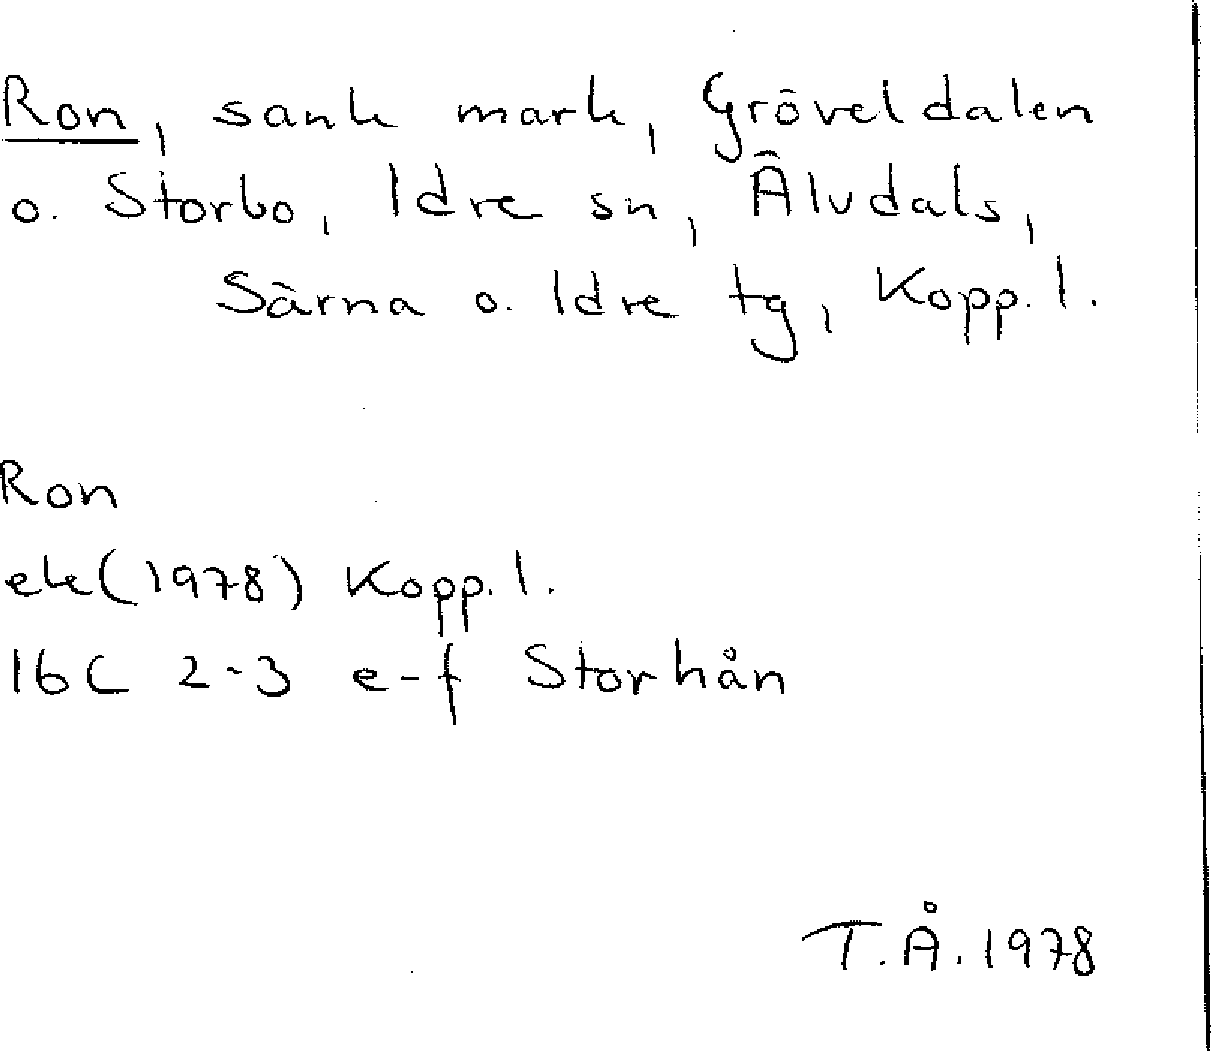 Ron, sank mark, Gröveldalen
o. Storbo, Idre sn, Älvdals,
Särna o. Idre tg, Kopp. l.
Ron
ek (1978) Kopp. l.
16C 2-3 e-f Storhån
T.Å. 1978